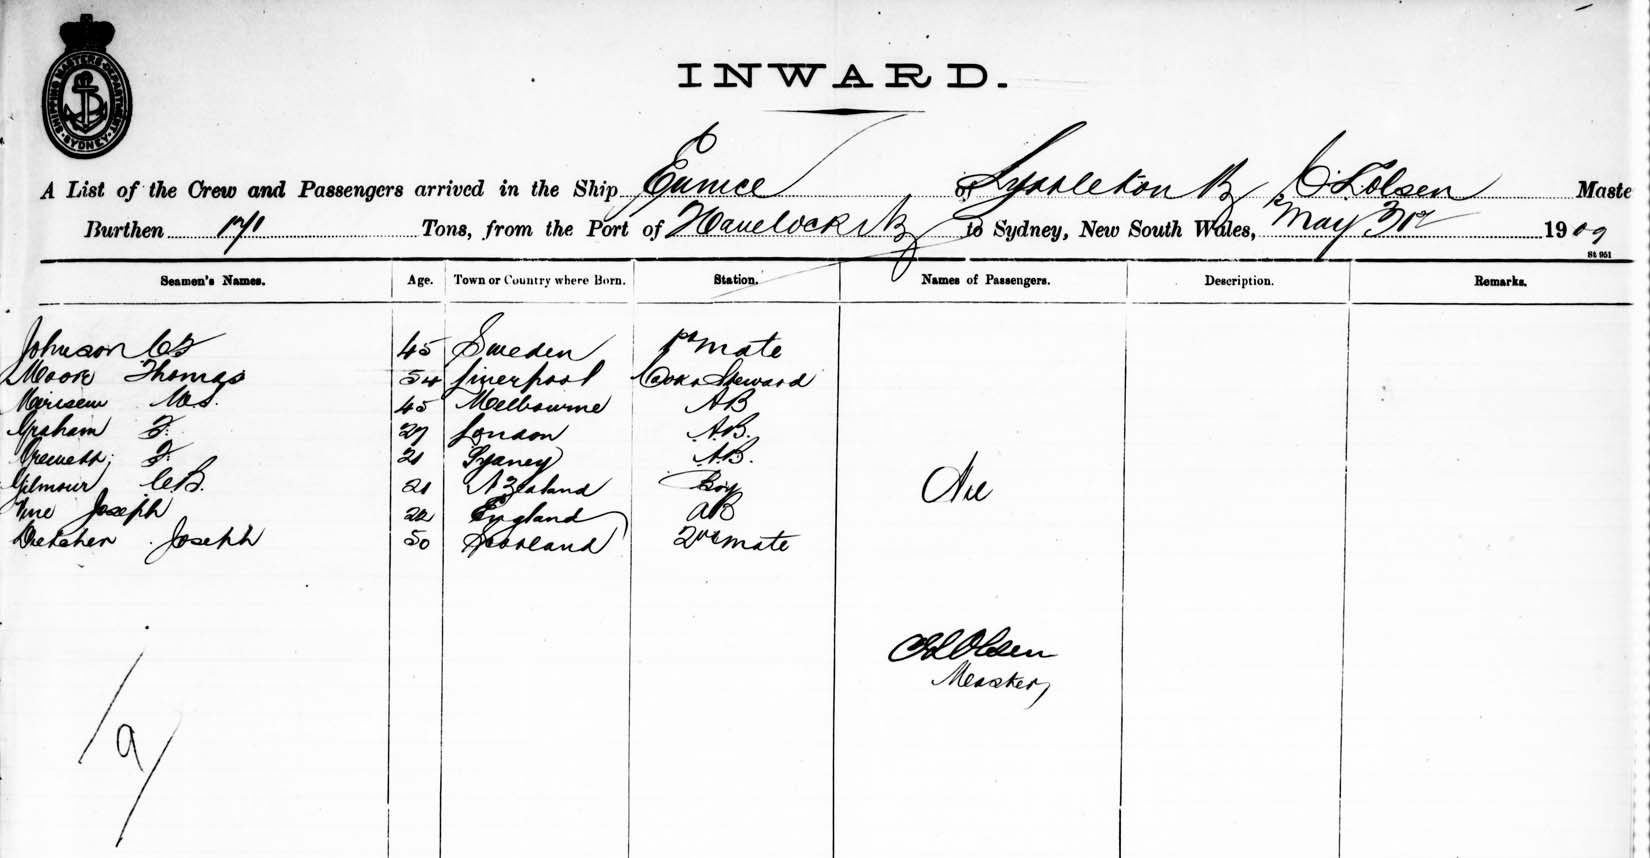 SHIPPING MASTERS DEPARTMENT
SYDNEY
INWARD.
A List of the Crew and Passengers arrived in the Ship Eunice of Lyttleton NZ, C. L. Olsen Maste
Burthen 171 Tons, from the Port of Havelock NZ to Sydney, New South Wales, May 31st 1909
St 951
Seamen's Names. Age. Town or Country where Born. Station. Names of Passengers. Description. Remarks.
Johnson 45 Sweden 1st mate
Moore Thomas 54 Liverpool Cook & Steward
45 Melbourne AB
Graham F. 27 London A.B.
F. 21 Sydney A.B.
Gilmour C.B. 21 N Zealand Boy
Nil
Vine Joseph 22 England AB
Joseph 50 Scotland 2nd mate
C L Olsen
Master
/9/